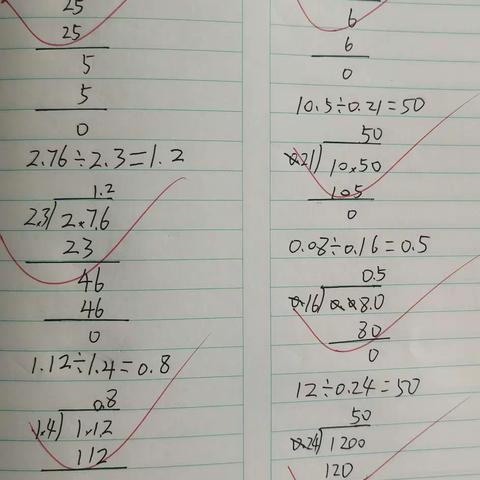 25
25
5
5
0
2.76÷2.3=1.2
1.2
2.3)2.7.6
23
46
46
0
1.12÷1.4=0.8
0.8
1.4)1.1.2
112
6
6
0
10.5÷0.21=50
50
0.21)10.50
105
0
0.08÷0.16=0.5
0.5
0.16)0.08.0
80
0
12÷0.24=50
50
0.24)1200
120